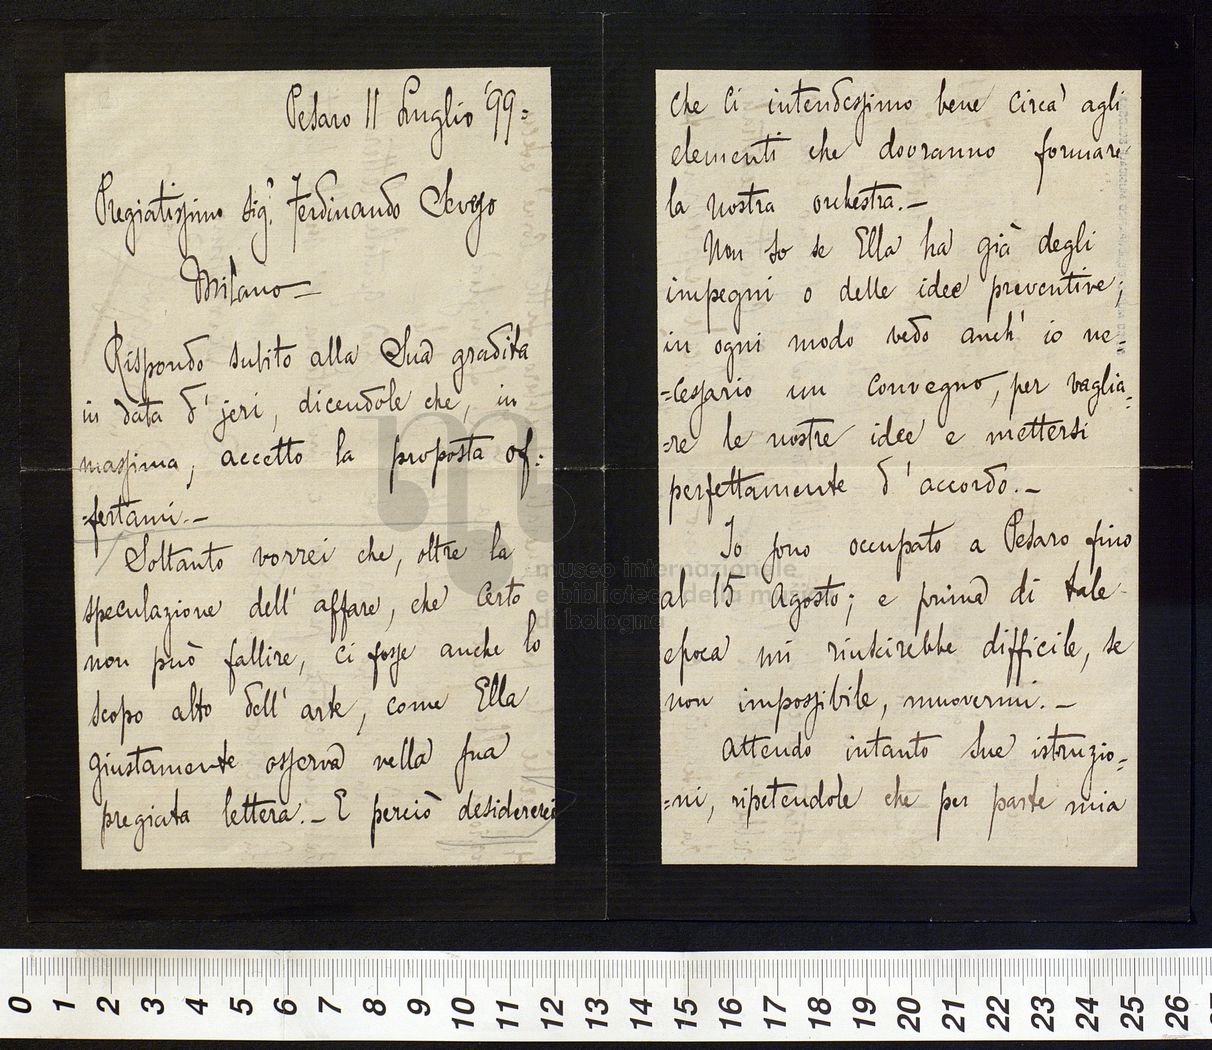 Pesaro 11 Luglio '99=
Pregiatissimo Sig.r Ferdinando
Milano—
Rispondo subito alla Sua gradita
in data d'jeri, dicendole che, in
massima, accetto la proposta of=
=fertami.—
Soltanto vorrei che, oltre la
speculazione dell'affare, che certo
non può fallire, ci fosse anche lo
scopo alto dell'arte, come Ella
giustamente osserva nella sua
pregiata lettera.— E perciò desidererei
che ci intendessimo bene circa agli
elementi che dovranno formare
la nostra orchestra.—
Non so se Ella ha già degli
impegni o delle idee preventive;
in ogni modo vedo anch'io ne=
=cessario un convegno, per vaglia=
=re le nostre idee e mettersi
perfettamente d'accordo.—
Io sono occupato a Pesaro fino
al 15 Agosto; e prima di tale
epoca mi riuscirebbe difficile, se
non impossibile, muovermi.—
Attendo intanto sue istruzio=
=ni, ripetendole che per parte mia
museo internazionale
e biblioteca della musica
di bologna
0 1 2 3 4 5 6 7 8 9 10 11 12 13 14 15 16 17 18 19 20 21 22 23 24 25 26